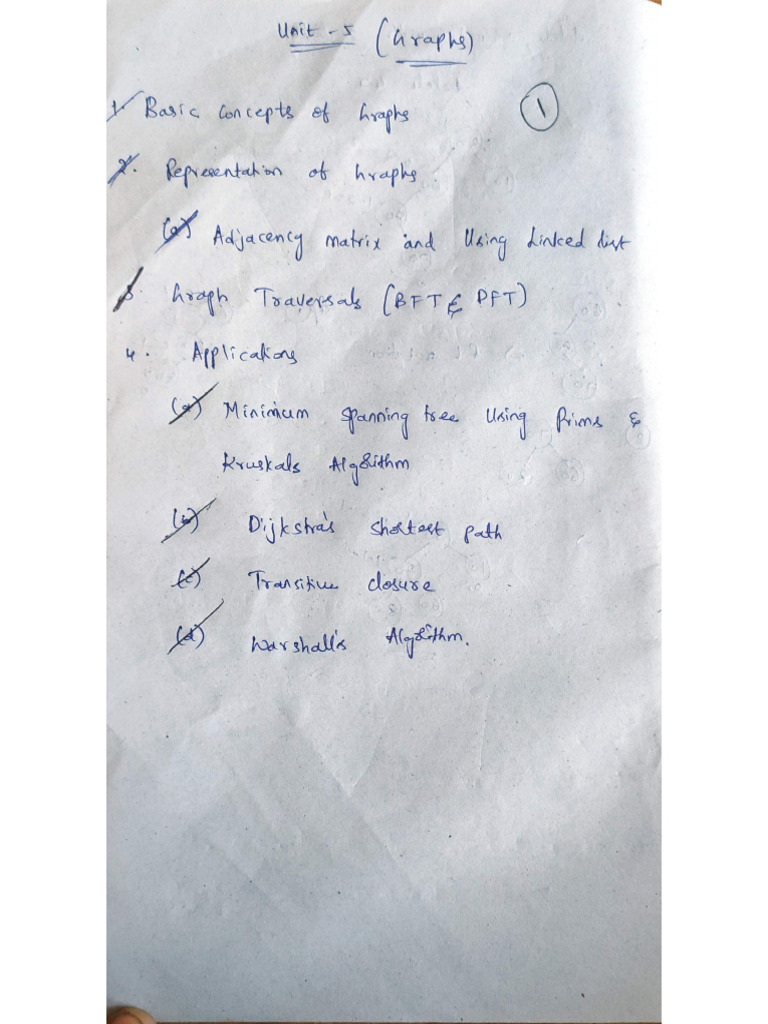 Unit - 5 (Graphs)
1. Basic Concepts of Graphs
1
2. Representation of Graphs.
(a) Adjacency matrix and Using Linked list
3. Graph Traversals (BFT & DFT)
4. Applications
(a) Minimum Spanning tree Using Prims &
Kruskals Algorithm
(b) Dijkstra's Shortest path
(c) Transitive closure
(d) Warshall's Algorithm.